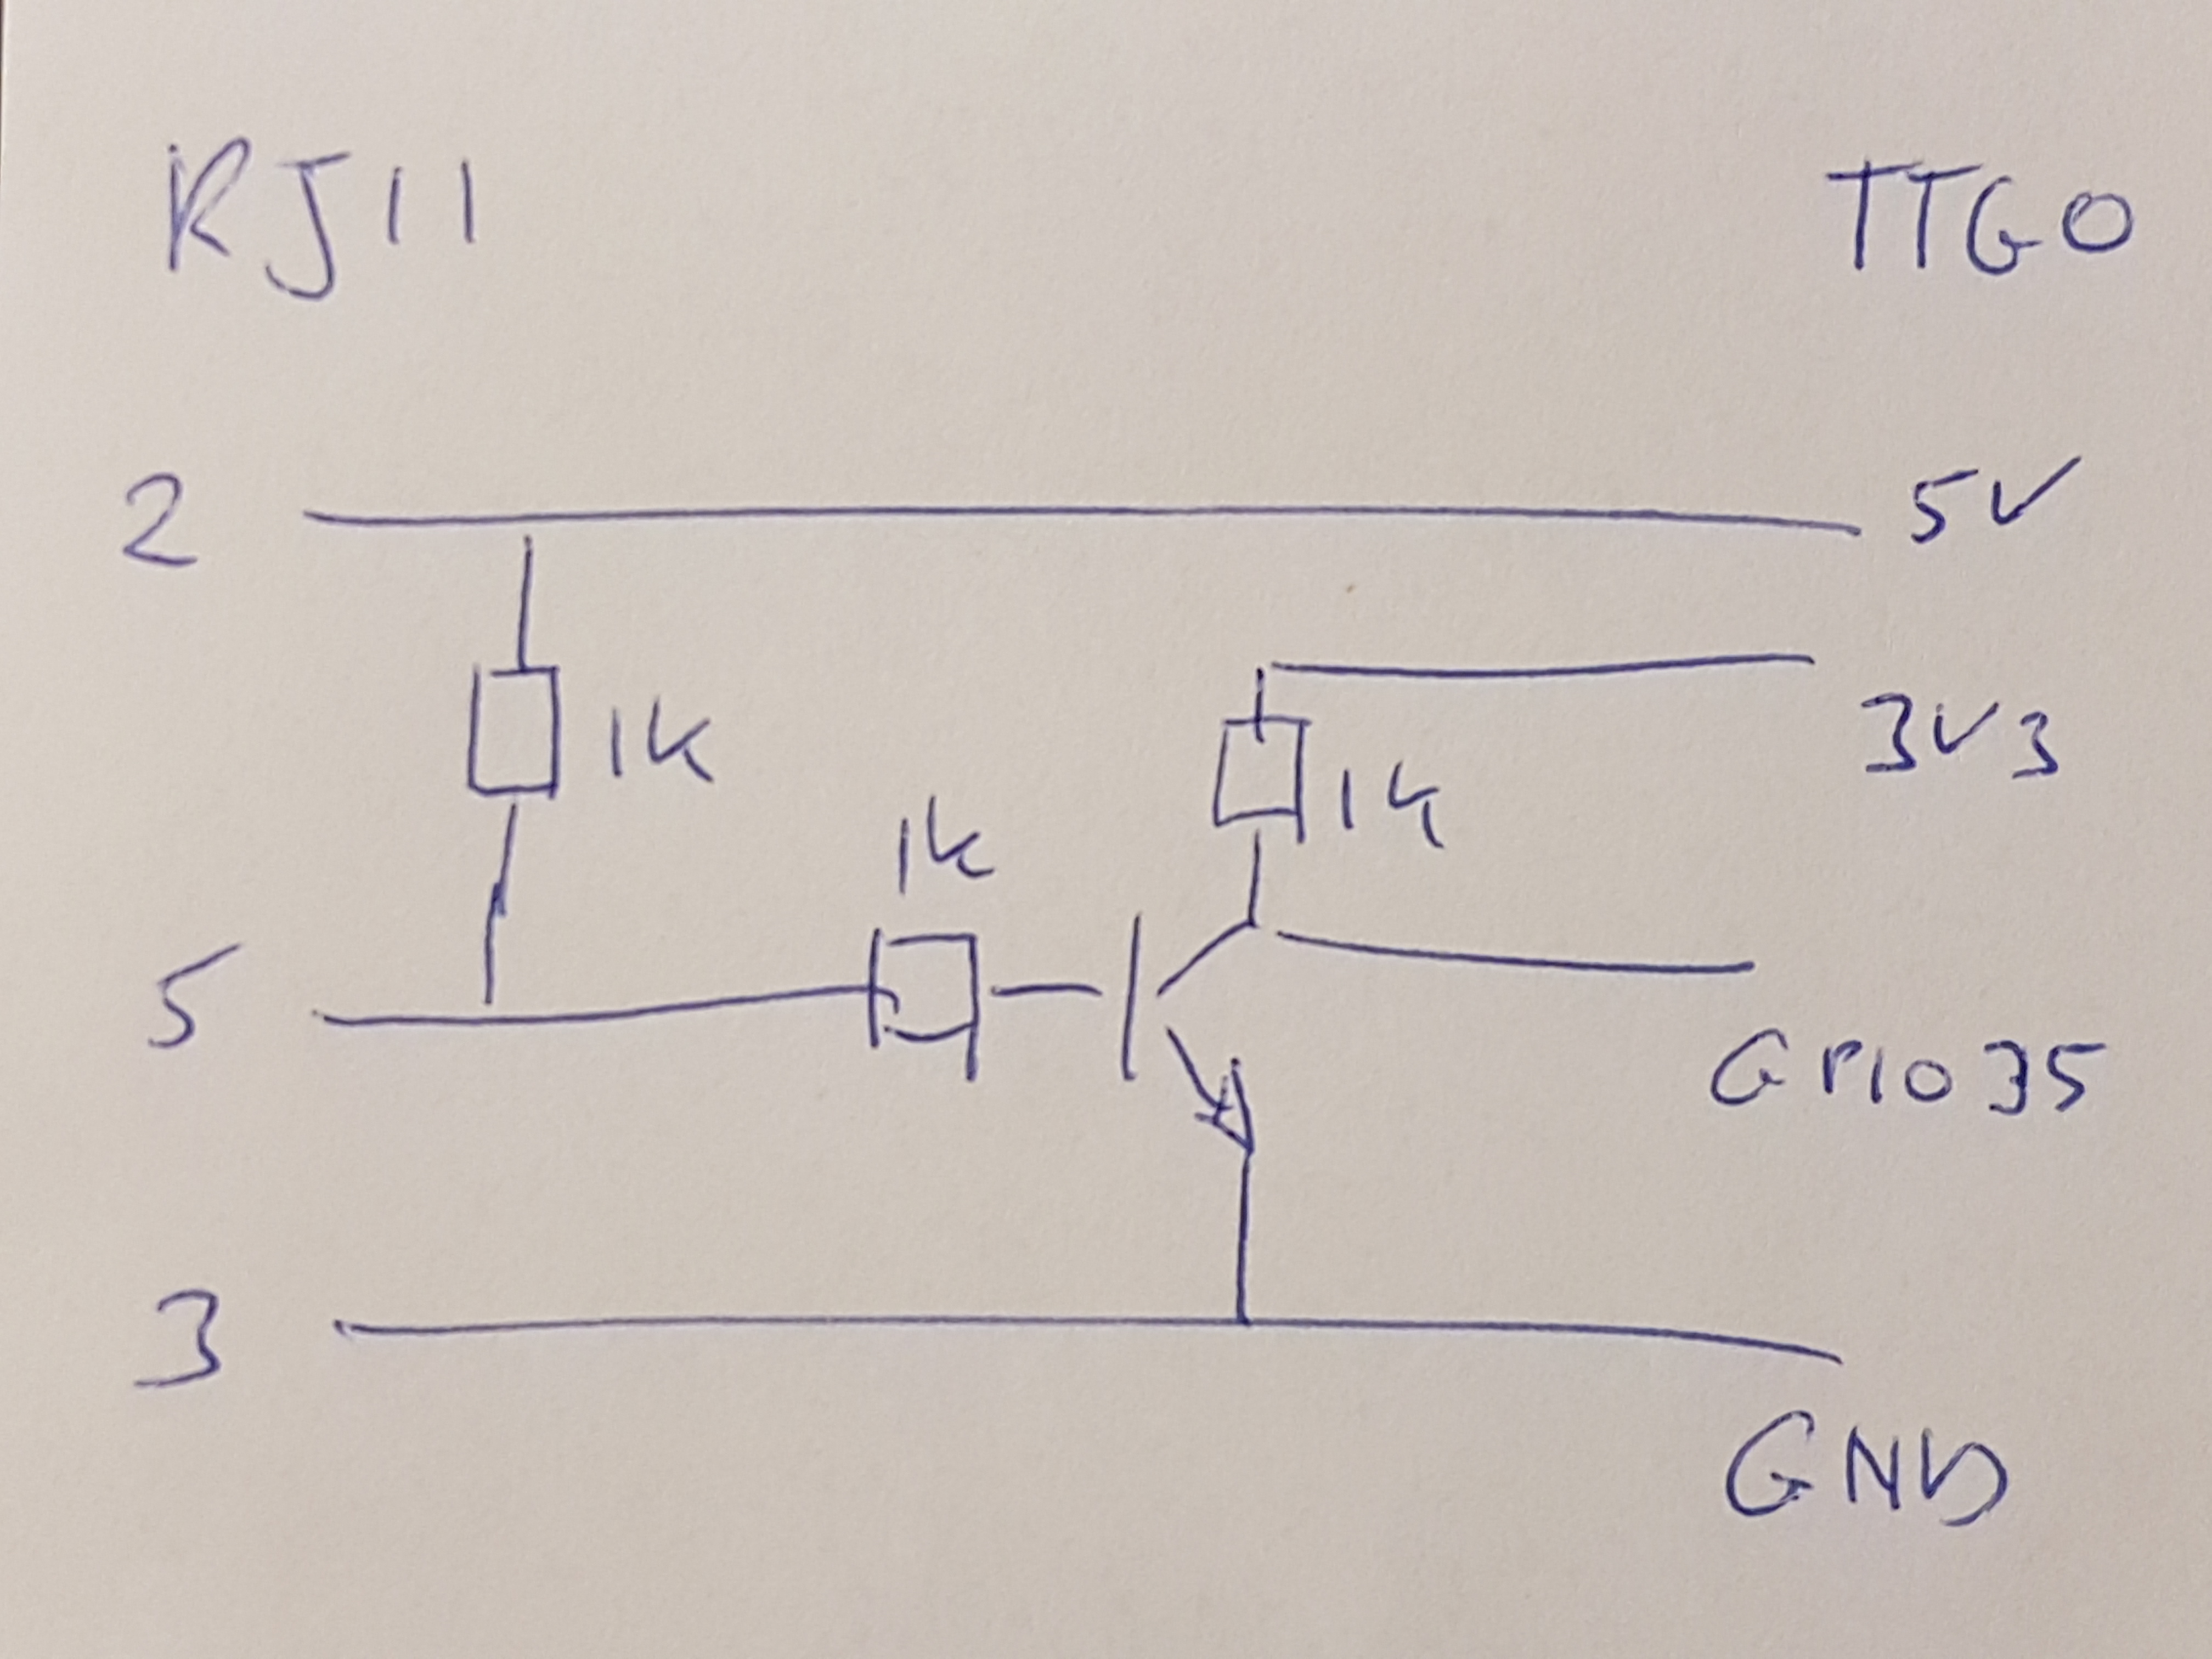 RJ11 TTGO
2 5V
1K 3V3
1k 1k
5 GPIO35
3
GND